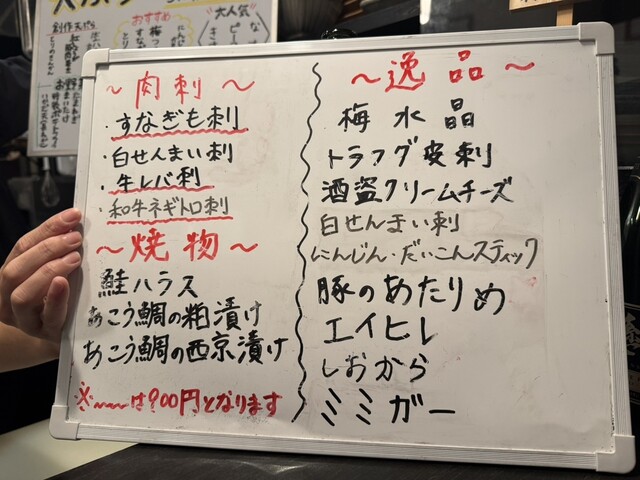 ～肉刺～
・すなぎも刺
・白せんまい刺
・牛レバ刺
・和牛ネギトロ刺
～焼物～
鮭ハラス
あこう鯛の粕漬け
あこう鯛の西京漬け
※〜〜は900円となります
～逸品～
梅水晶
トラフグ皮刺
酒盗クリームチーズ
白せんまい刺
にんじん・だいこんスティック
豚のあたりめ
エイヒレ
しおから
ミミガー
おすすめ
"大人気"
創作天ぷら